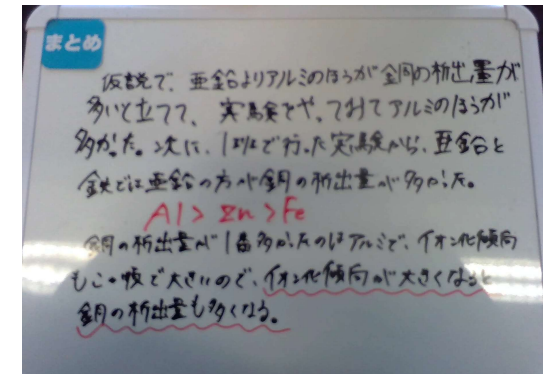 まとめ
仮説で、亜鉛よりアルミのほうが銅の析出量が
多いと立てて、実験でやってみてアルミのほうが
多かった。次に、1班で行った実験から、亜鉛と
鉄では亜鉛の方が銅の析出量が多かった。
Al > Zn > Fe
銅の析出量が1番多かったのはアルミで、イオン化傾向
もこの中で大きいので、イオン化傾向が大きくなると
銅の析出量も多くなる。